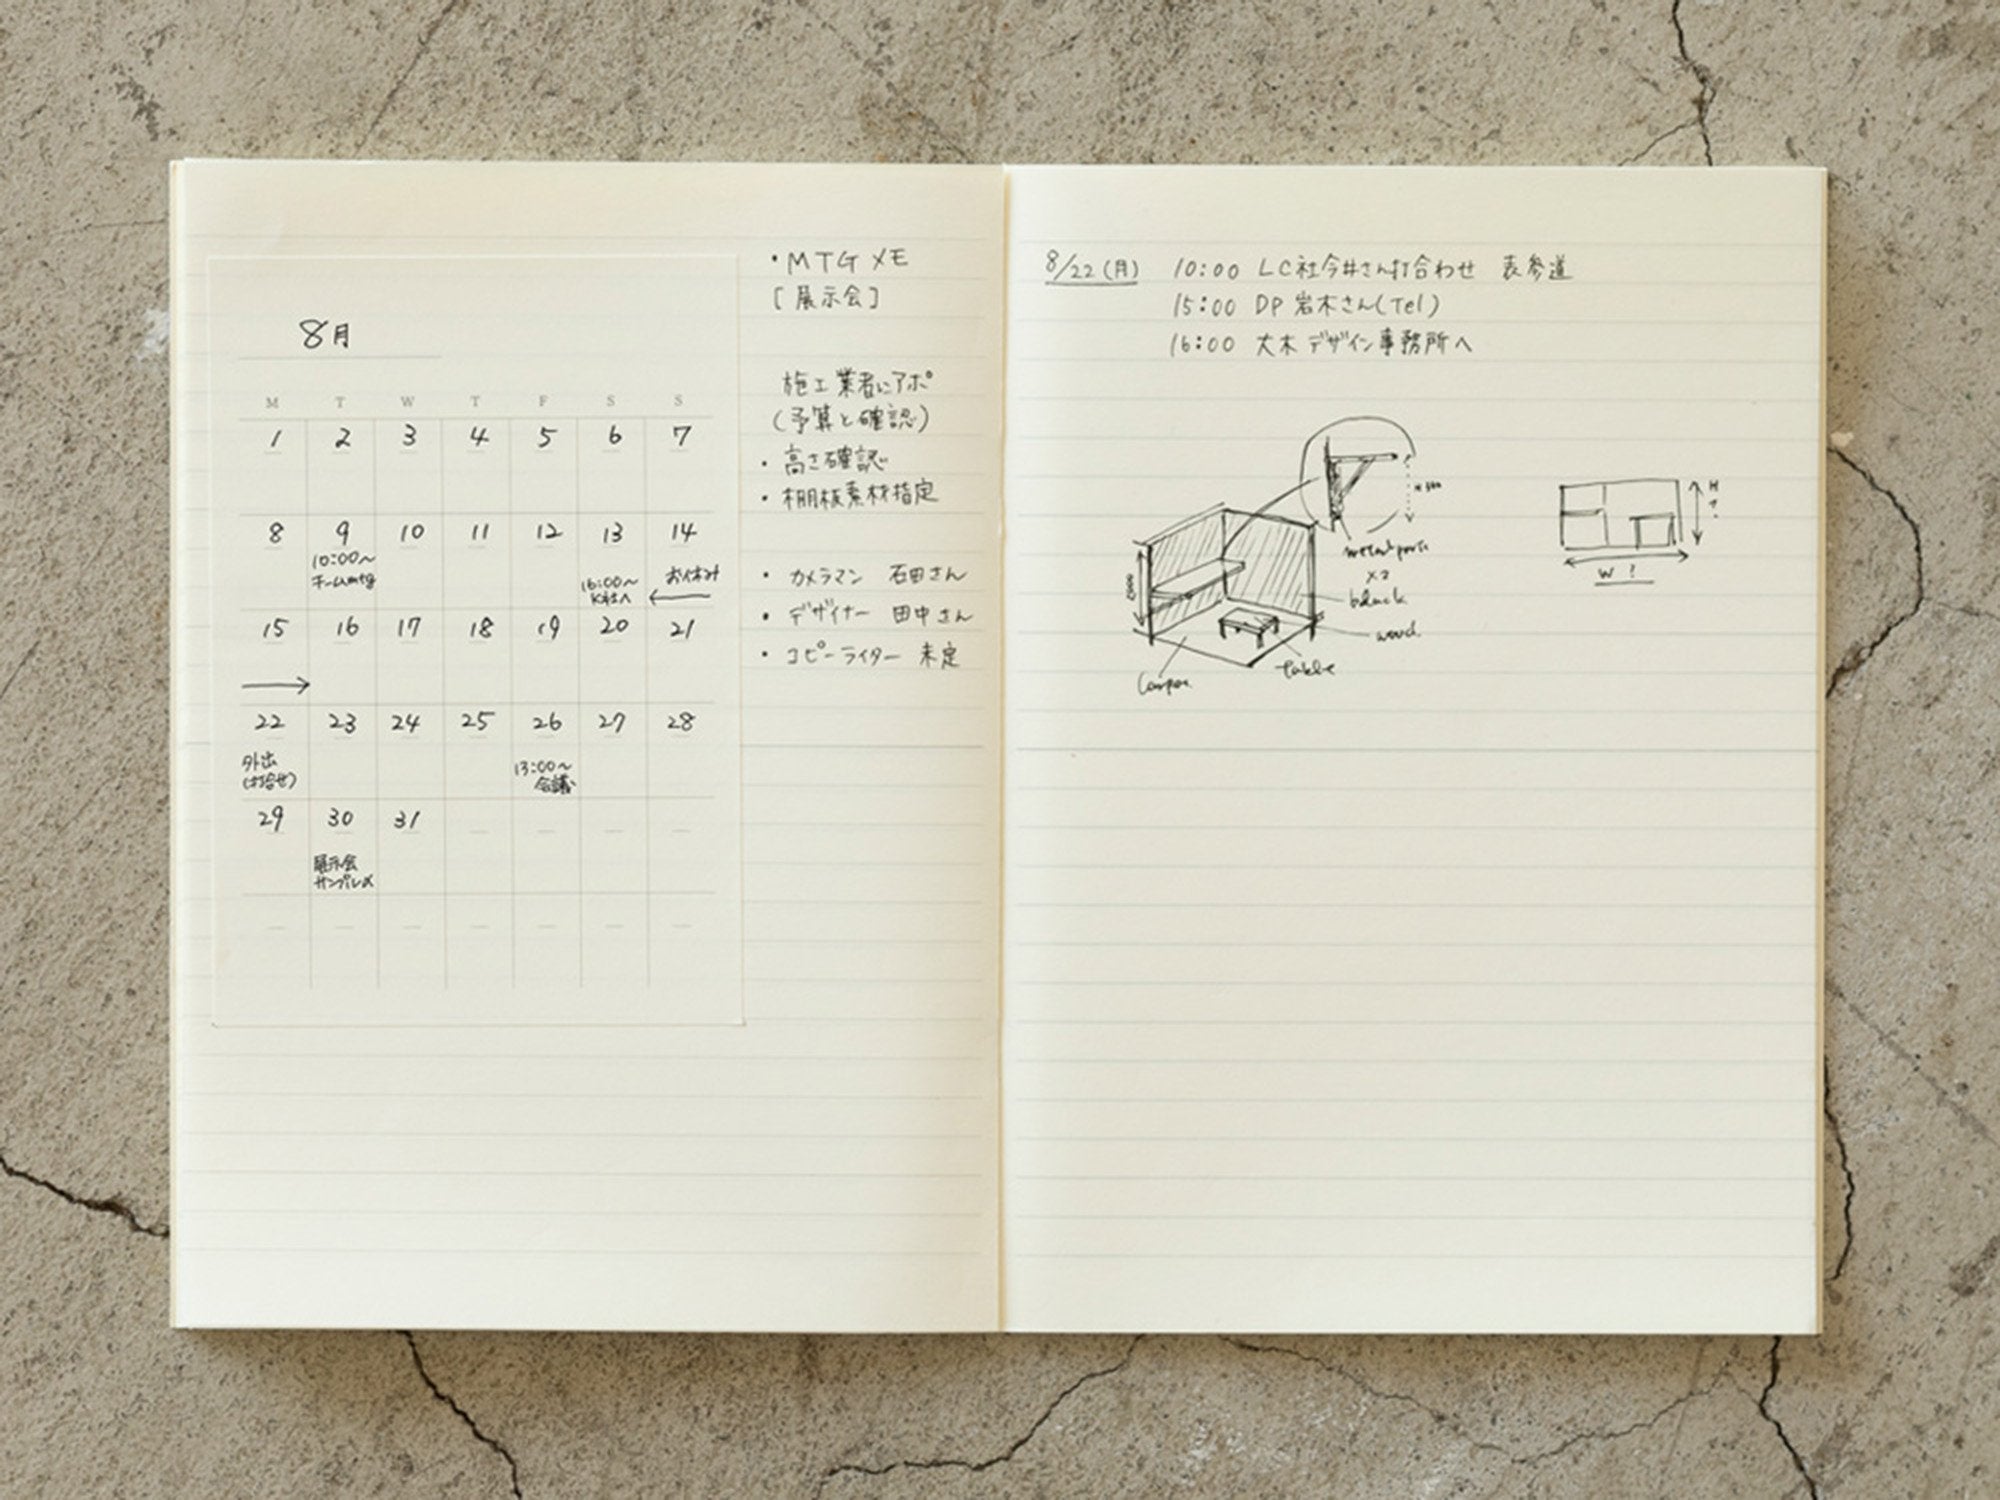 8月
M T W T F S S
1 2 3 4 5 6 7
8 9 10 11 12 13 14
10:00〜
チームmtg
16:00〜
K社へ
お休み
15 16 17 18 19 20 21
22 23 24 25 26 27 28
外出
(打合せ)
13:00〜
会議
29 30 31
展示会
サンプル〆
・MTGメモ
[展示会]
施工業者にアポ
(予算と確認)
・高さ確認
・棚板素材指定
・カメラマン 石田さん
・デザイナー 田中さん
・コピーライター 未定
8/22(月) 10:00 LC社今井さん打合わせ 表参道
15:00 DP 岩木さん(Tel)
16:00 大木デザイン事務所へ
metal parts
×2
black
wood
table
H?
W?